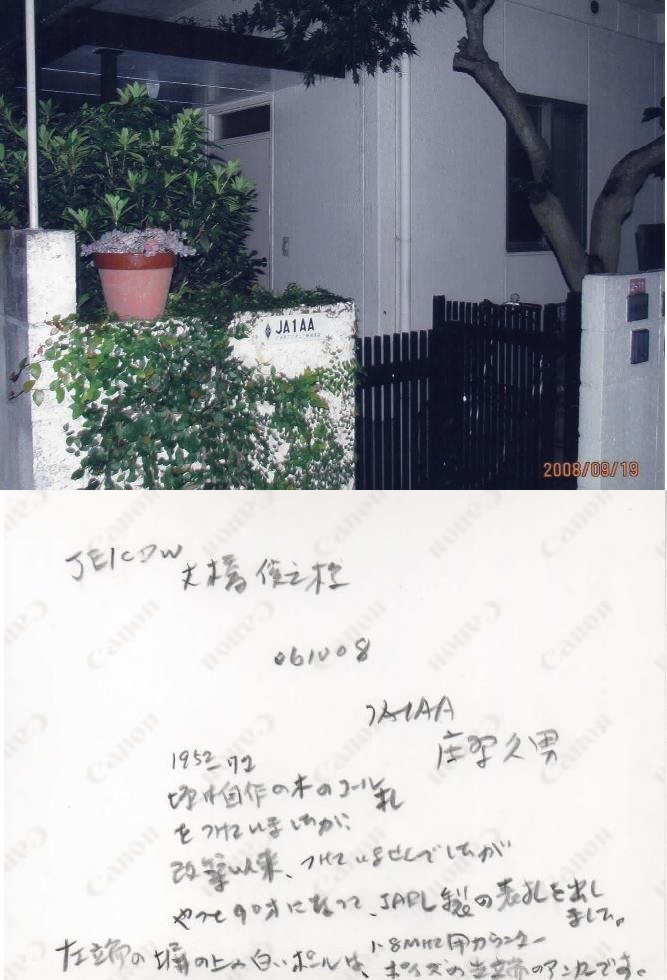 JA1AA
2-11
2008/09/19
JE1CDW
大橋俊之様
061008
JA1AA
庄野久男
1952
自作の木のコール札
をつけていましたが、
改築以来、つけていませんでしたが
やっと90才になって、JARL製の表札を出し
ました。
左端の塀の上の白いポールは、1.8MHz用カウンター
ポイズン
Canon